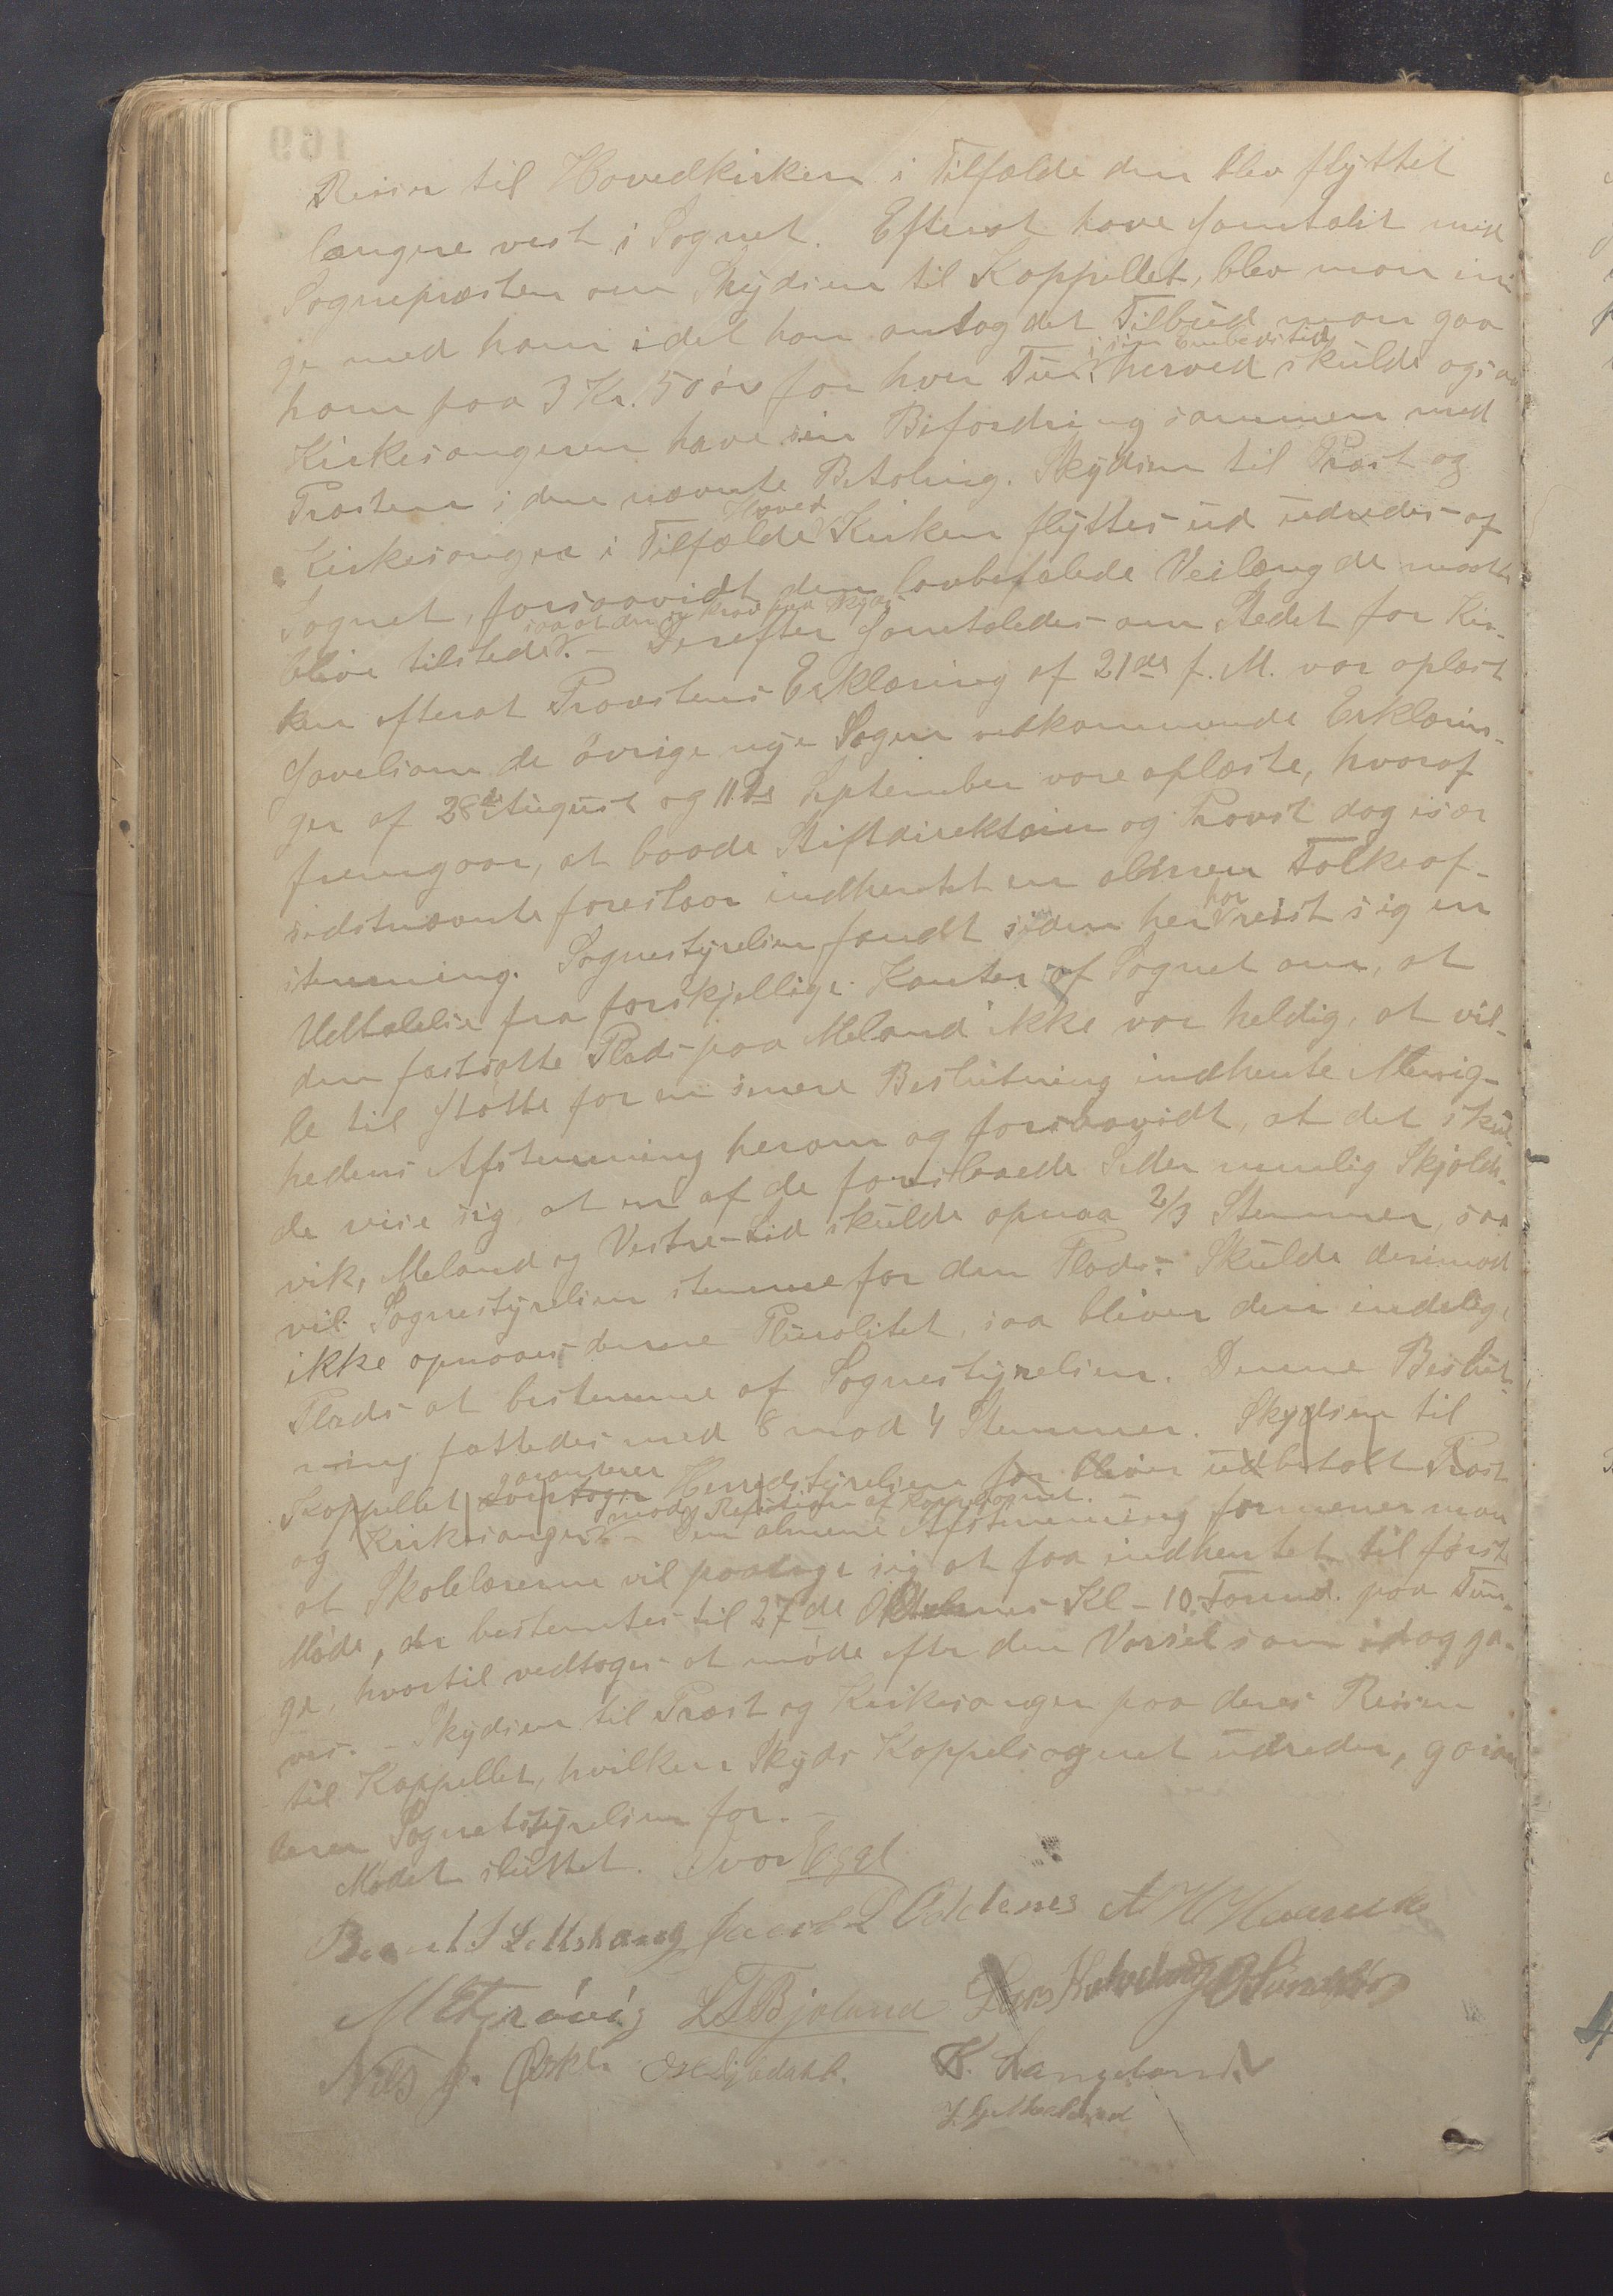 Reiser til Hovedkirken i Tilfælde den blev flyttet
længere vest i Sognet. Efterat have samtalt med
Sognepræsten om Skydsen til Kappellet, blev man eni-
ge med ham idet han antog det Tilbud man gav
ham paa 3 Kr. 50 øre for hver Tur i sin Embedstid, herved skulde ogsaa
Kirkesangeren have sin Bifordring sammen med
Præsten i den nævnte Betaling. Skydsen til Præst og
Kirkesanger i Tilfælde Hoved Kirken flyttes ud udredes af
Sognet, forsaavidt den lovbefalede Veilængde maatte
blive tilstede saa at der er krav paa Skyds. – Derefter samtaledes om Stedet for Kir-
ken efterat Provstens Erklæring af 21de f. M. var oplæst
saavelsom de øvrige nye Sagen vedkommende Erklærin-
ger af 28de August og 11te September vare oplæste, hvoraf
fremgaar, at baade Stiftdirektionen og Provst dog især
sidstnævnte foreslaar indhentet en almen Folkeaf-
stemning. Sognestyrelsen fandt siden her har reist sig en
Udtalelse fra forskjellige Kanter af Sognet om, at
den fastsatte Plads paa Meland ikke var heldig, at vil-
le til Støtte for en senere Beslutning indhente Menig-
hedens Afstemning herom og forsaavidt, at det skul-
de vise sig, at en af de foreslaaede Steder nemlig Skjolds-
vik, Meland og Vestre-Lid skulde opnaa 2/3 Stemmer, saa
vil Sognestyrelsen stemme for den Plads. Skulde derimod
ikke opnaaes denne Pluralitet, saa bliver den endelige
Plads at bestemme af Sognestyrelsen. Denne Beslut-
ning fattedes med 8 mod 4 Stemmer. Skydsen til
Kappellet garanterer Herredstyrelsen for bliver udbetalt Præst
og Kirkesanger mod Refusion af Kappelsognet. – Den almene Afstemning formener man
at Skolelærerne vil paatage sig at faa indhentet til først
Møde, der bestemtes til 27de Oktober Kl – 10 Formd. paa Tun-
ge, hvortil vedtoges at møde efter den Varsel som idag ga-
ves. – Skydsen til Præst og Kirkesanger paa deres Reiser
til Kappellet, hvilken Skyds Kappelsognet udreder, garan
terer Sognetstyrelsen for. –
Mødet sluttet. Ivar Egge
Jacob L Oddenes
L T Bjoland
Nils J.
K. Langeland